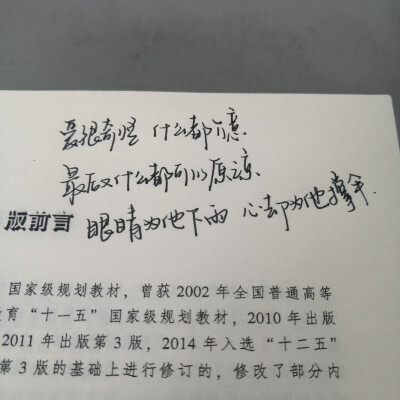 爱很奇怪 什么都介意
最后又什么都可以原谅
眼睛为他下雨 心却为他撑伞.
版前言
国家级规划教材，曾获 2002 年全国普通高等
育“十一五”国家级规划教材，2010 年出版
2011 年出版第 3 版，2014 年入选“十二五”
第 3 版的基础上进行修订的，修改了部分内